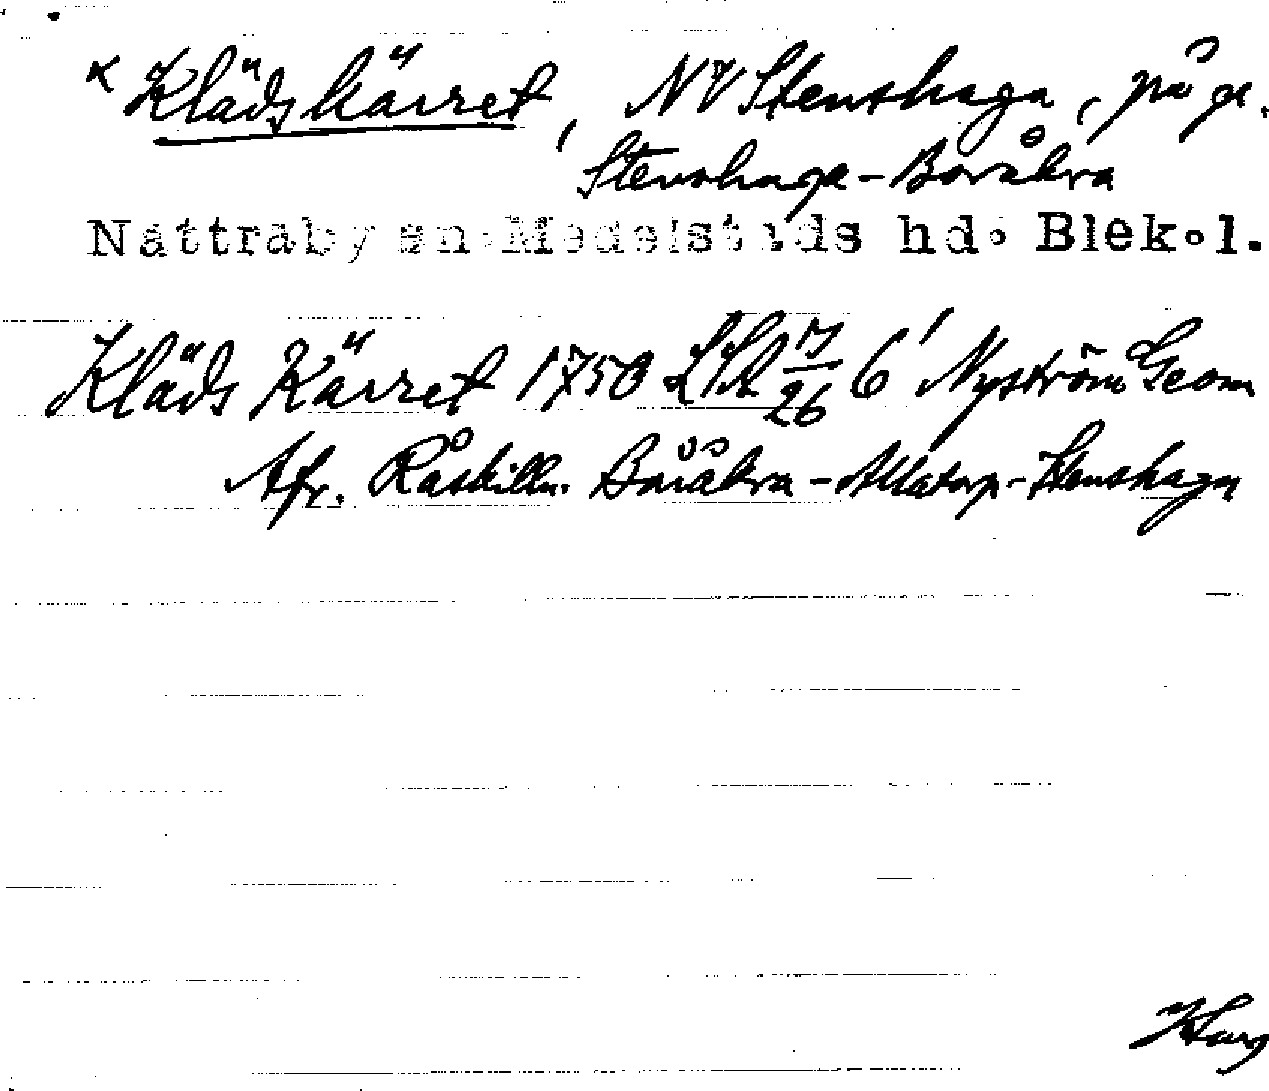 × Klädskärret, NV Stenshaga, på gr.
Stenshaga - Boråkra
Nättraby sn. Medelstads hd. Blek.l.
Kläds Kärret 1750 LSA N/26 6¹ Nyström Geom
Afr. Råskilln. Båråkra - Allatorp - Stenshaga